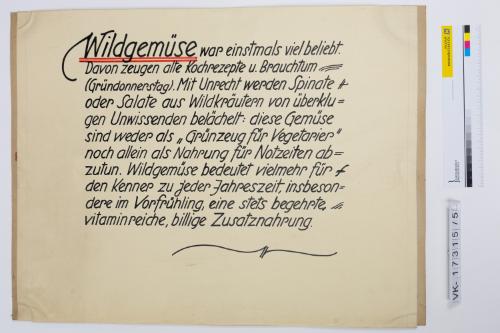 Wildgemüse war einstmals viel beliebt.
Davon zeugen alte Kochrezepte u. Brauchtum
(Gründonnerstag). Mit Unrecht werden Spinate
oder Salate aus Wildkräutern von überklu=
gen Unwissenden belächelt: diese Gemüse
sind weder als „Grünzeug für Vegetarier"
noch allein als Nahrung für Notzeiten ab=
zutun. Wildgemüse bedeutet vielmehr für
den Kenner zu jeder Jahreszeit, insbeson=
dere im Vorfrühling, eine stets begehrte,
vitaminreiche, billige Zusatznahrung.
VK-17315/5